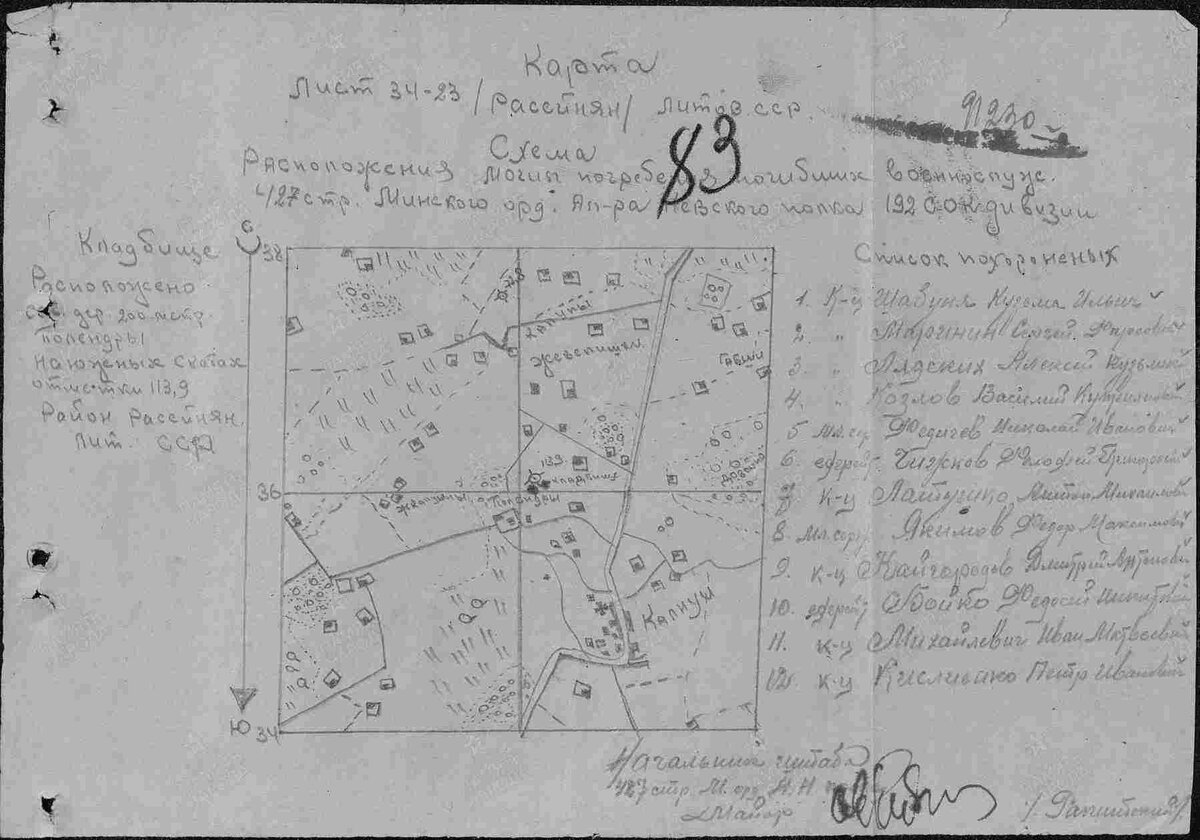 Карта
Лист 34-23 /Рассейнян/ Литов. ССР.
91230
Схема
83
Расположения могил погребения погибших военнослуж.
427 стр. Минского орд. Ал-ра Невского полка 192 СОК дивизии
Кладбище
Расположено
дер. 200 метр.
Полендры
на южных скатах
отметки 113,9
Район Рассейнян.
Лит. ССР
С
Ю
38
36
34
Капупы
Жевпишки
Габши
113.9
Кладбище
Полендры
Жвапупы
Капнуш
Список похороненых
1. К-ц Щабуня Кузьма Ильич
2. " Сергей
3. " Лядских Алексей Кузьмич
4. " Козлов Василий
5 мл. сер. Федичев Николай Иванович
6. ефрейт. Чижков
7 к-ц Михаилов
8. Мл. серж. Якимов Федор Максимович
9. к-ц Кайгородов Дмитрий Антонович
10. ефрейт. Обойко Федосий Никитович
11. к-ц Михайлевич Иван Матвеевич
12. к-ц Кисливако Петр Иванович
Начальник штаба
427 стр. М. орд. А. Н.
Майор